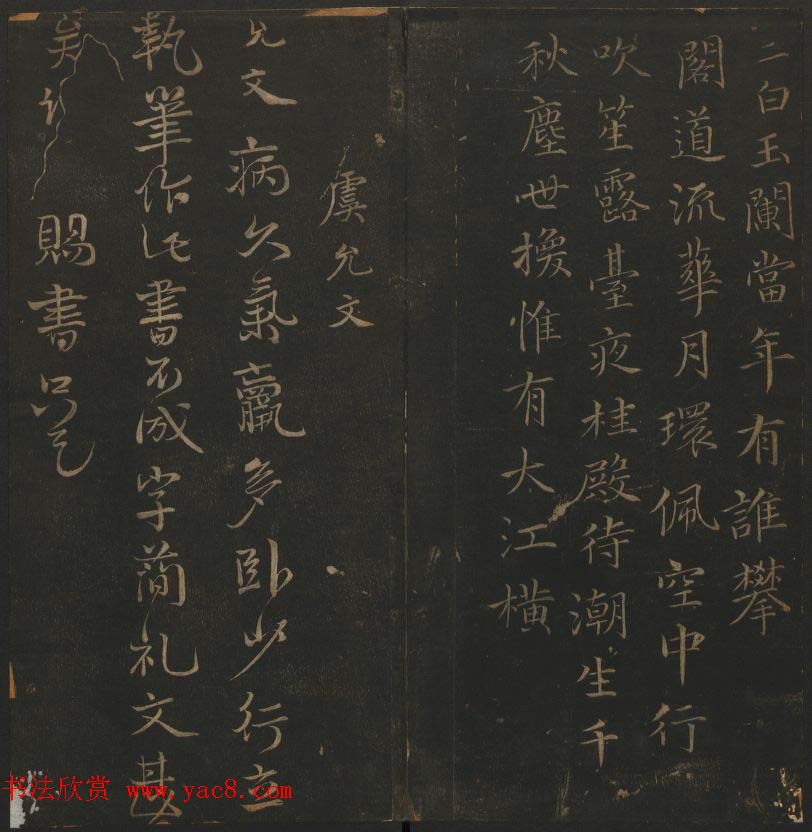 二白玉闌當年有誰攀
閣道流華月環佩空中行
吹笙露臺夜桂殿待潮生千
秋塵世換惟有大江橫
虞允文
允文病久氣羸多臥少行立
執筆作此書不成字簡礼文甚
賜書只乞
书法欣赏 www.yac8.com